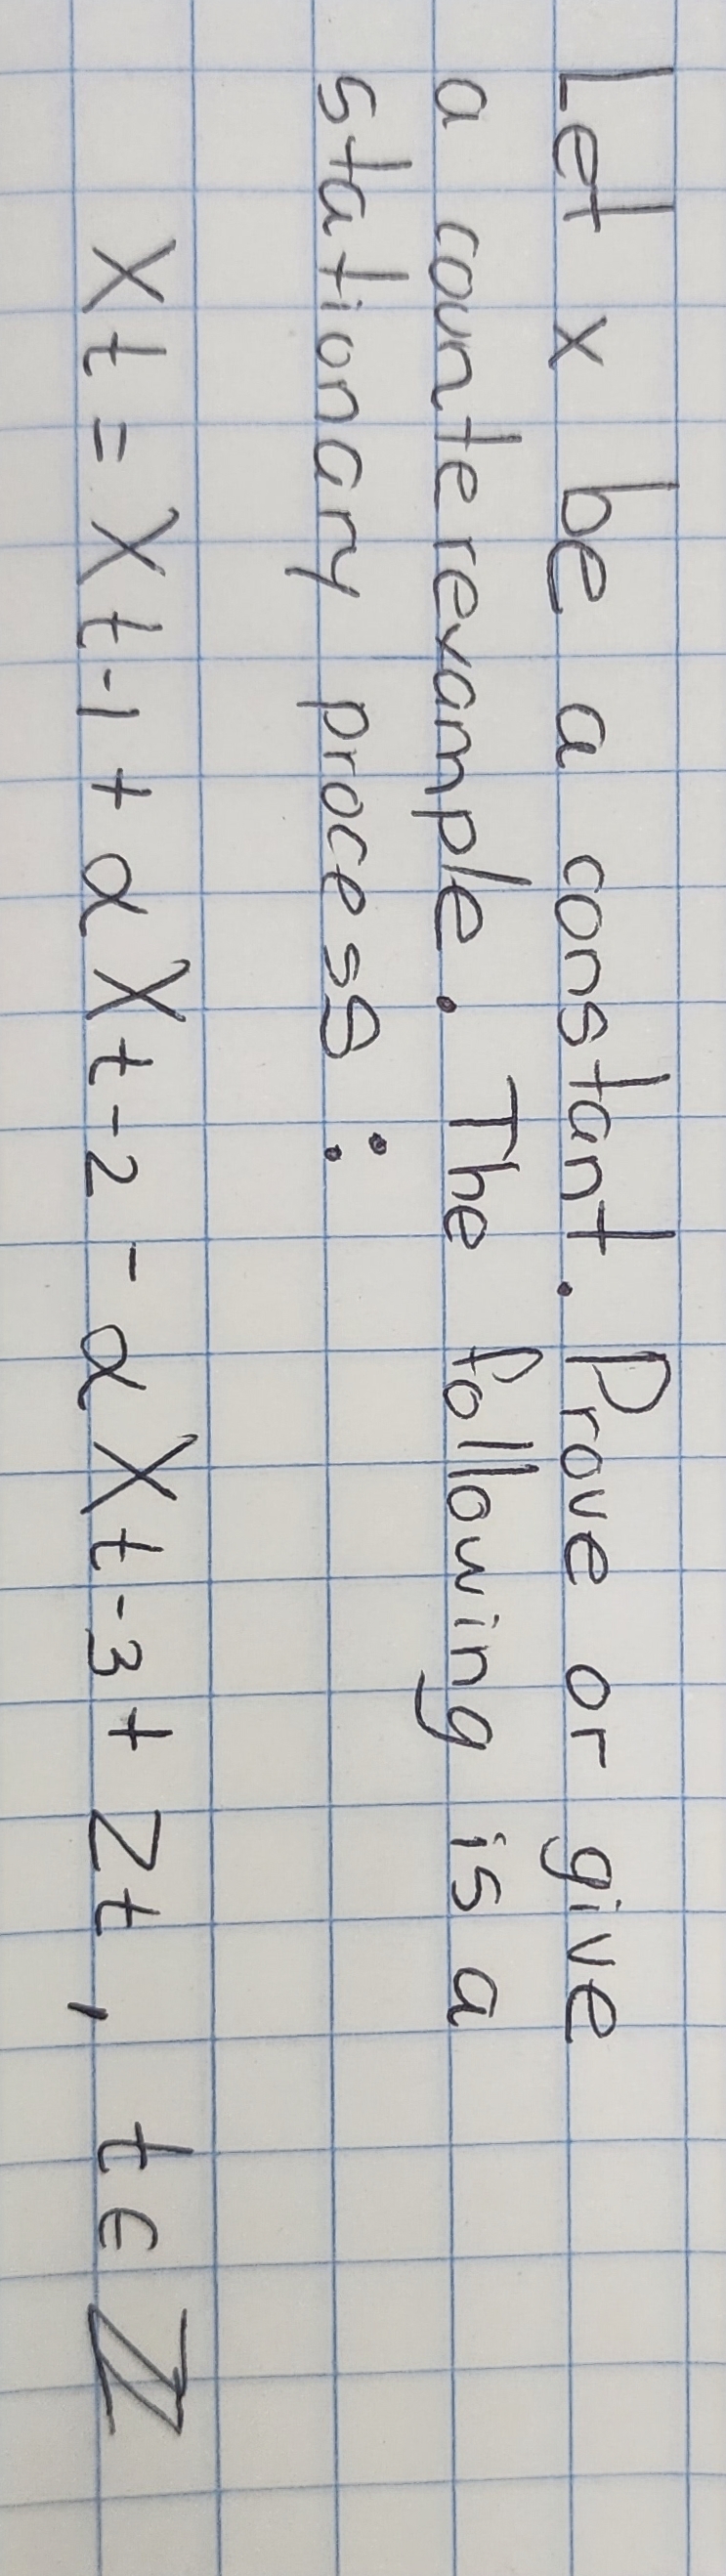 Let x be a constant. Prove or give
a counterexample. The following is a
stationary process :
Xt = Xt-1 + αXt-2 - αXt-3 + Zt , t∈ℤ